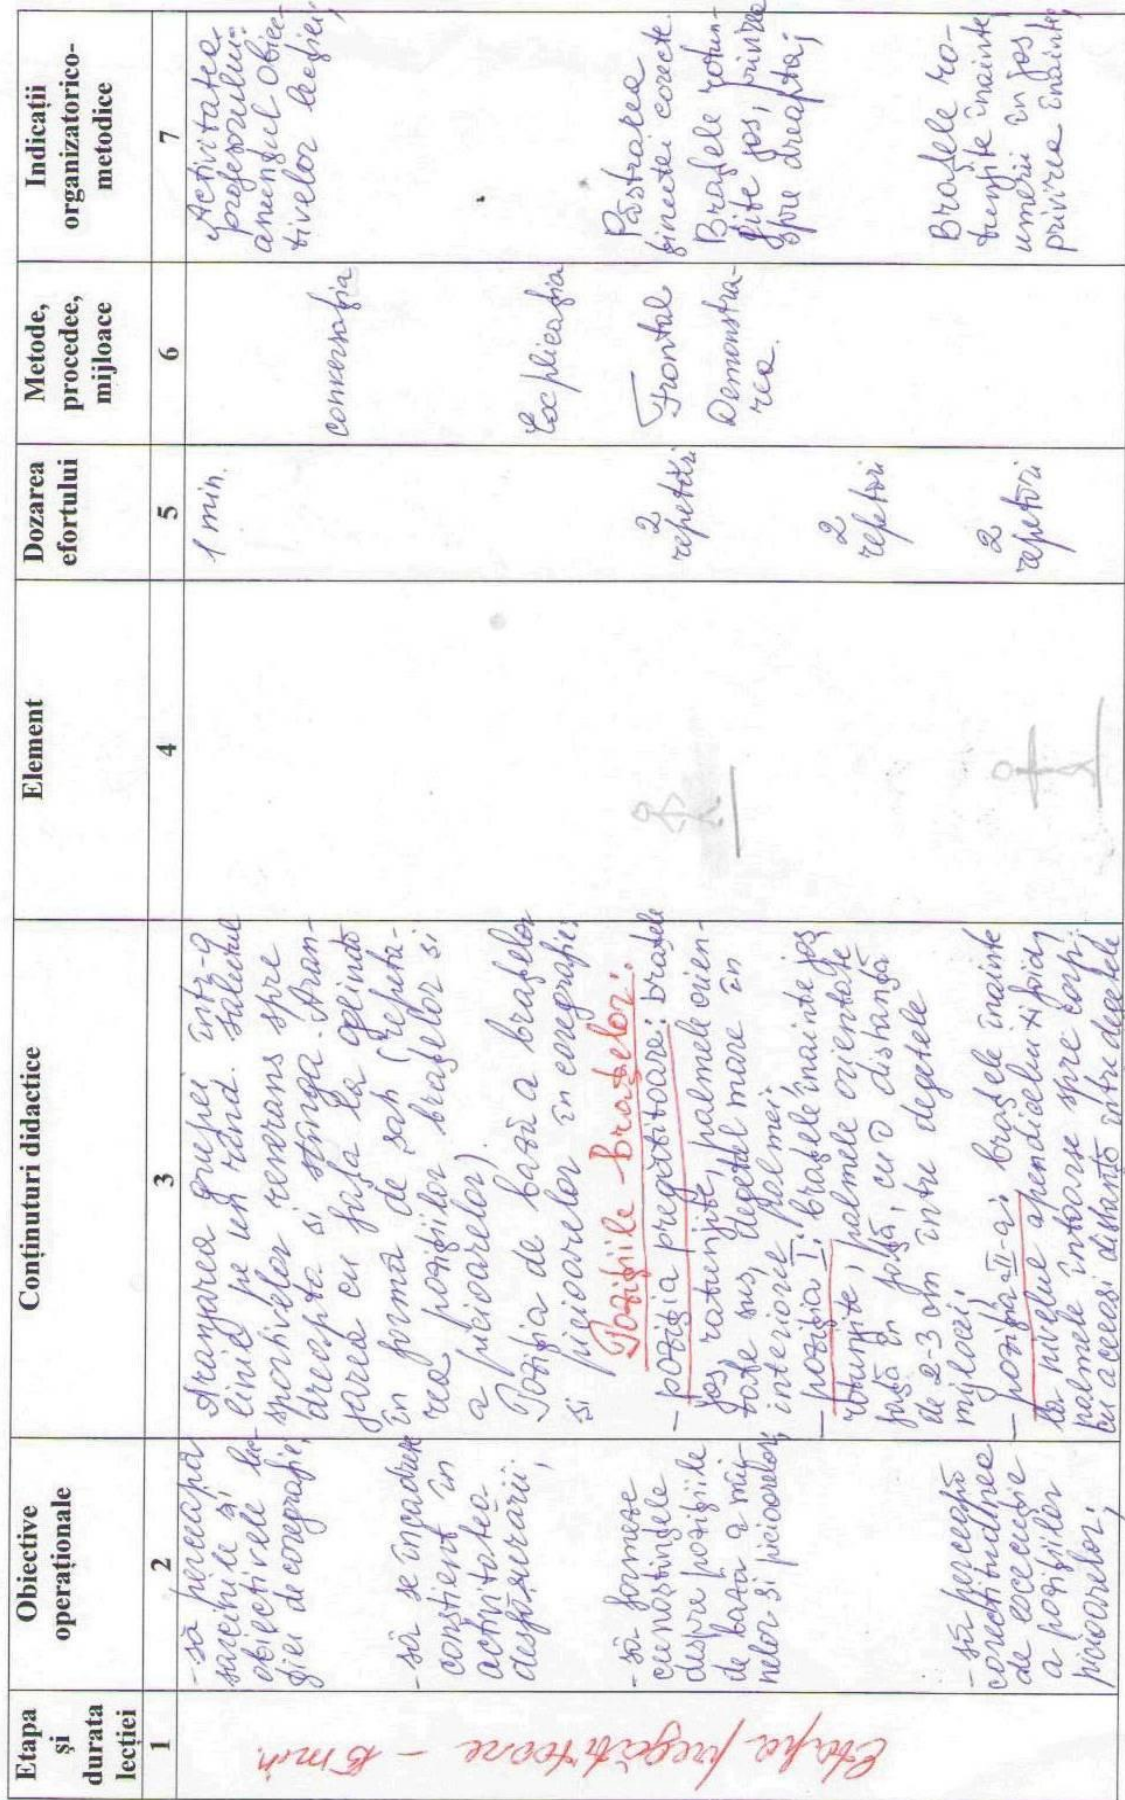 Etapa
și
durata
lecției
Obiective
operaționale
Conținuturi didactice
Element
Dozarea
efortului
Metode,
procedee,
mijloace
Indicații
organizatorico-
metodice
1
2
3
4
5
6
7
Etapa pregătitoare - 15 min.
- să perceapă
sarcinile și
obiectivele lec-
ției de coregrafie;
- să se încadreze
conștient în
activitatea
desfășurării;
- să formeze
cunoștințele
despre pozițiile
de bază a mâi-
nelor si picioarelor;
- să perceapă
corectitudinea
de execuție
a pozițiilor
picioarelor;
Aranjarea grupei într-o
linie pe un rând. Salutul
sportivelor reverans spre
dreapta și stînga. Aran-
jarea cu fața la oglindă
în formă de șah (repeta-
rea pozițiilor brațelor și
a picioarelor).
Poziția de bază a brațelor
și picioarelor în coregrafie:
Pozițiile brațelor:
- poziția pregătitoare: brațele
jos rotunjite, palmele orien-
tate sus, degetul mare în
interiorul palmei.
- poziția I: brațele înainte jos
rotunjite, palmele orientate
față în față, cu o distanță
de 2-3 cm între degetele
mijlocii;
- poziția II-a: brațele înainte
la nivelul apendicelui xifoid,
palmele întoarse spre corp;
cu aceeași distanță între degetele
1 min.
2
repetări
2
repetări
2
repetări
conversația
Explicația
Frontal
Demonstra-
rea.
Activitatea
profesorului:
anunțul obiec-
tivelor lecției;
Păstrarea
ținutei corecte.
Brațele rotun-
jite jos, privirea
spre dreapta;
Brațele ro-
tunjite înainte,
umerii în jos
privirea înainte;